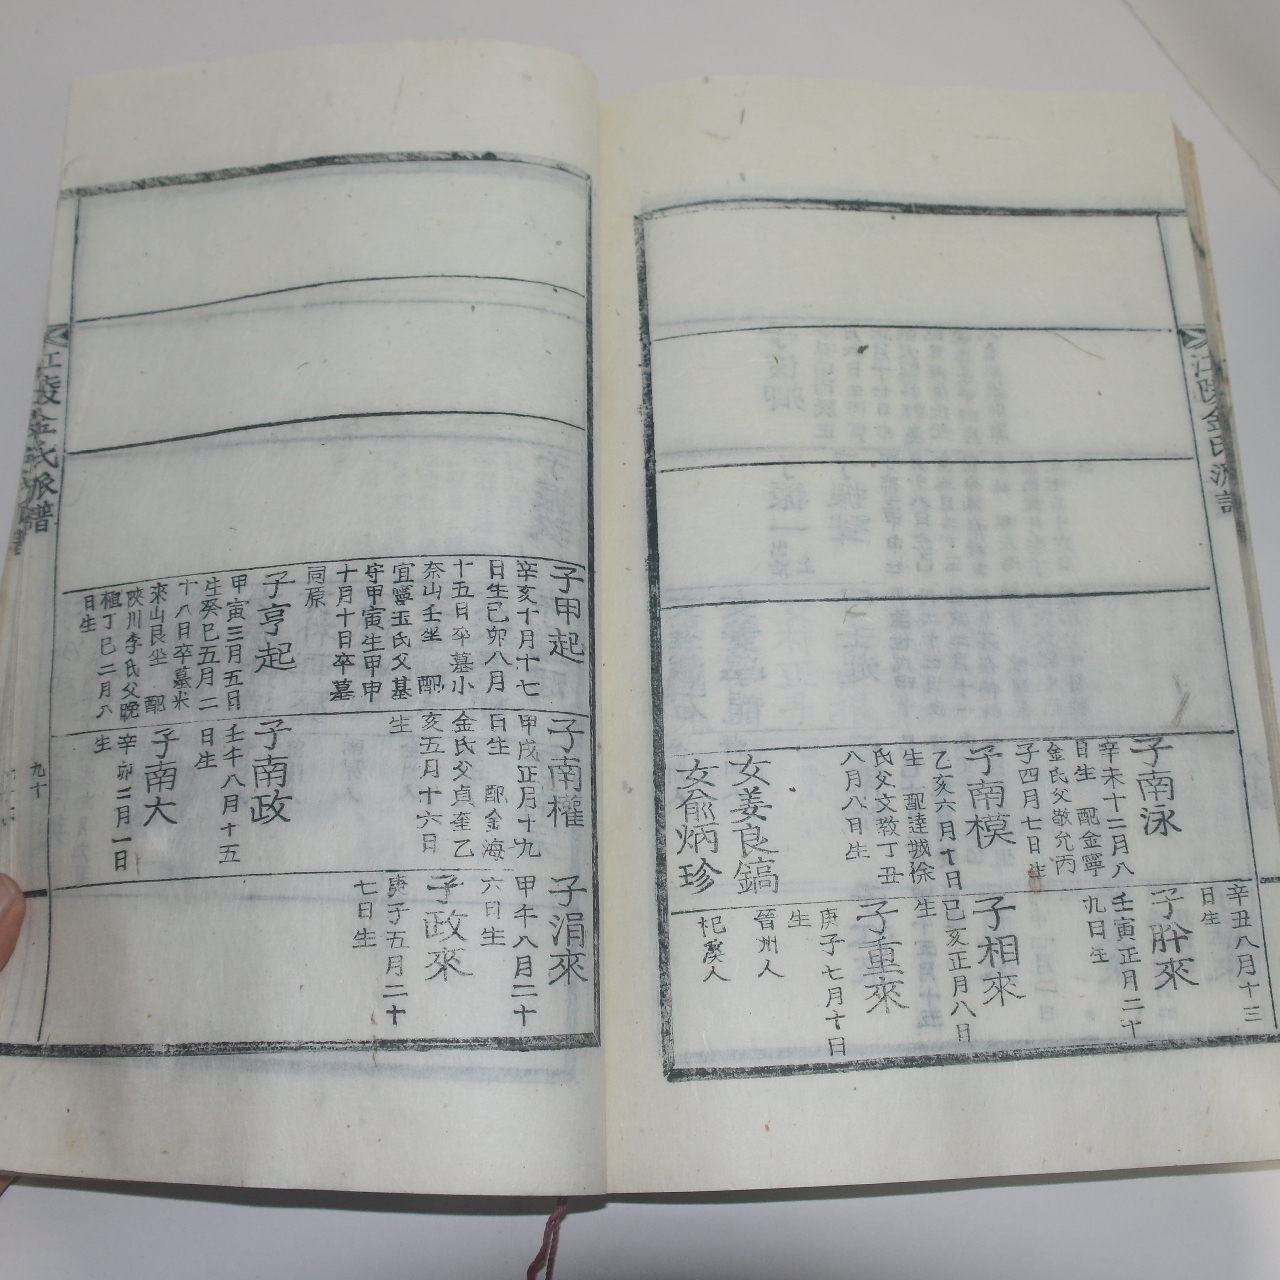 江陵金氏派譜
子南泳
辛未十二月八
日生 配金寧
金氏父敬允丙
子四月七日生
子南模
乙亥六月十日
生 配達城徐
氏父文教丁丑
八月八日生
女姜良鎬
女俞炳珍
辛丑八月十三
日生
子 來
壬寅正月二十
九日生
子相來
己亥正月八日
生
子重來
庚子七月十日
生
晉州人
杞溪人
子甲起
辛亥十月十七
日生己卯八月
十五日卒墓小
奈山壬坐 配
宜寧玉氏父基
守甲寅生甲申
十月十日卒墓
同原
子亨起
甲寅三月五日
生癸巳五月二
十八日卒墓米
來山艮坐 配
陜川李氏父晚
植丁巳二月八
日生
子南權
甲戌正月十九
日生 配金海
金氏父貞奎乙
亥五月十六日
生
子南政
壬午八月十五
日生
子南大
辛卯二月一日
生
子涓來
甲午八月二十
六日生
子政來
庚子五月二十
七日生
江陵金氏派譜
九十